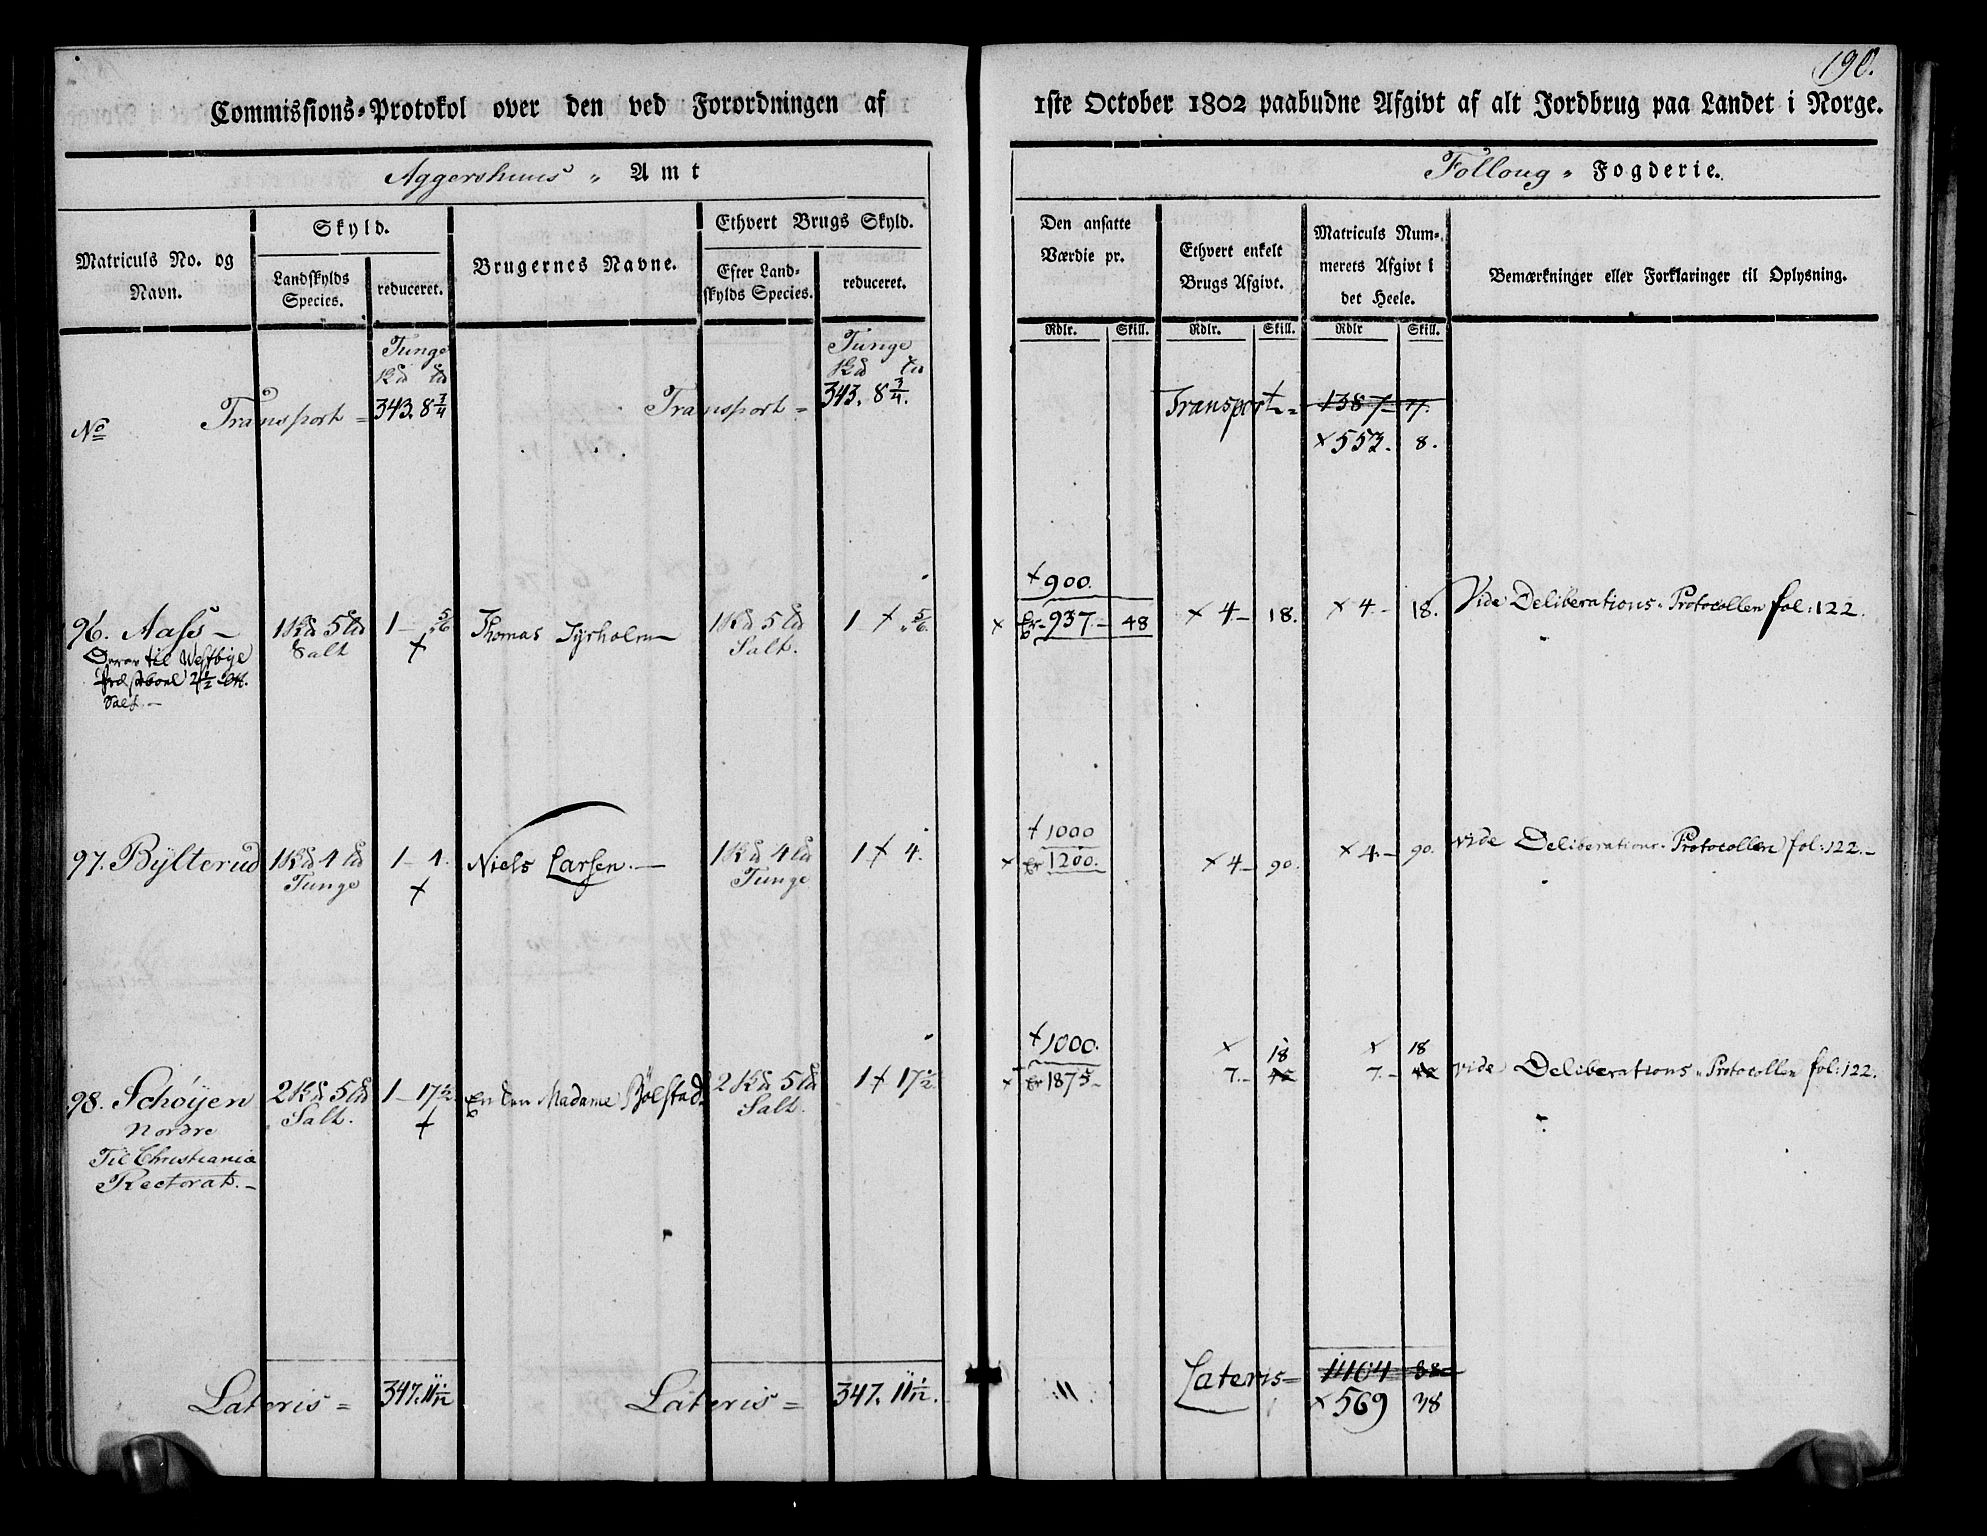 190.
Commissions-Protokol over den ved Forordningen af 1ste October 1802 paabudne Afgivt af alt Jordbrug paa Landet i Norge.
Aggershuus „ Amt
Folloug „ Fogderie.
Matriculs No. og Navn.
Skyld.
Landskylds Species.
reduceret.
Brugernes Navne.
Ethvert Brugs Skyld.
Efter Landskylds Species.
reduceret.
Den ansatte Værdie pr.
Ethvert enkelt Brugs Afgivt.
Matriculs Nummerets Afgivt i det Heele.
Bemærkninger eller Forklaringer til Oplysning.
Rdlr. Skill. Rdlr. Skill. Rdlr Skill.
Tunge Tunge
No Transport = 343. 8 3/4 Transport = 343. 8 3/4. Transport = 1387 - 7.
× 553. 8.
+ 900.
96. Aass - 1 5 1 - „ 5/6 Thomas Tyrholm 1 5 1 + „ 5/6. × 937. - 48 × 4 - 18. × 4 - 18. Vide Deliberations-Protocollen fol: 122.
Salt + Salt.
til Westbye
2 1/2
Salt. -
+ 1000
97. Bylterud 1 4 1 - 4. Niels Larsen. - 1 4 1 + 4. × 1200. × 4 - 90. × 4. - 90. vide Deliberations-Protocollen fol: 122. -
Tunge + Tunge
+ 1000. × 18 × 18
98. Schøyen 2 5 1 - 17 1/2 Enken Madame Bølstad 2 5 1 + 17 1/2. × 1875 - 7. - 7. - vide Deliberations-Protocollen fol: 122.
Nordre Salt. + Salt.
Til Christiania
Rectorat. -
Lateris = 347. 11 1/12 Lateris = 347. 11 1/12. „ Lateris = 1404 38
× 569 38